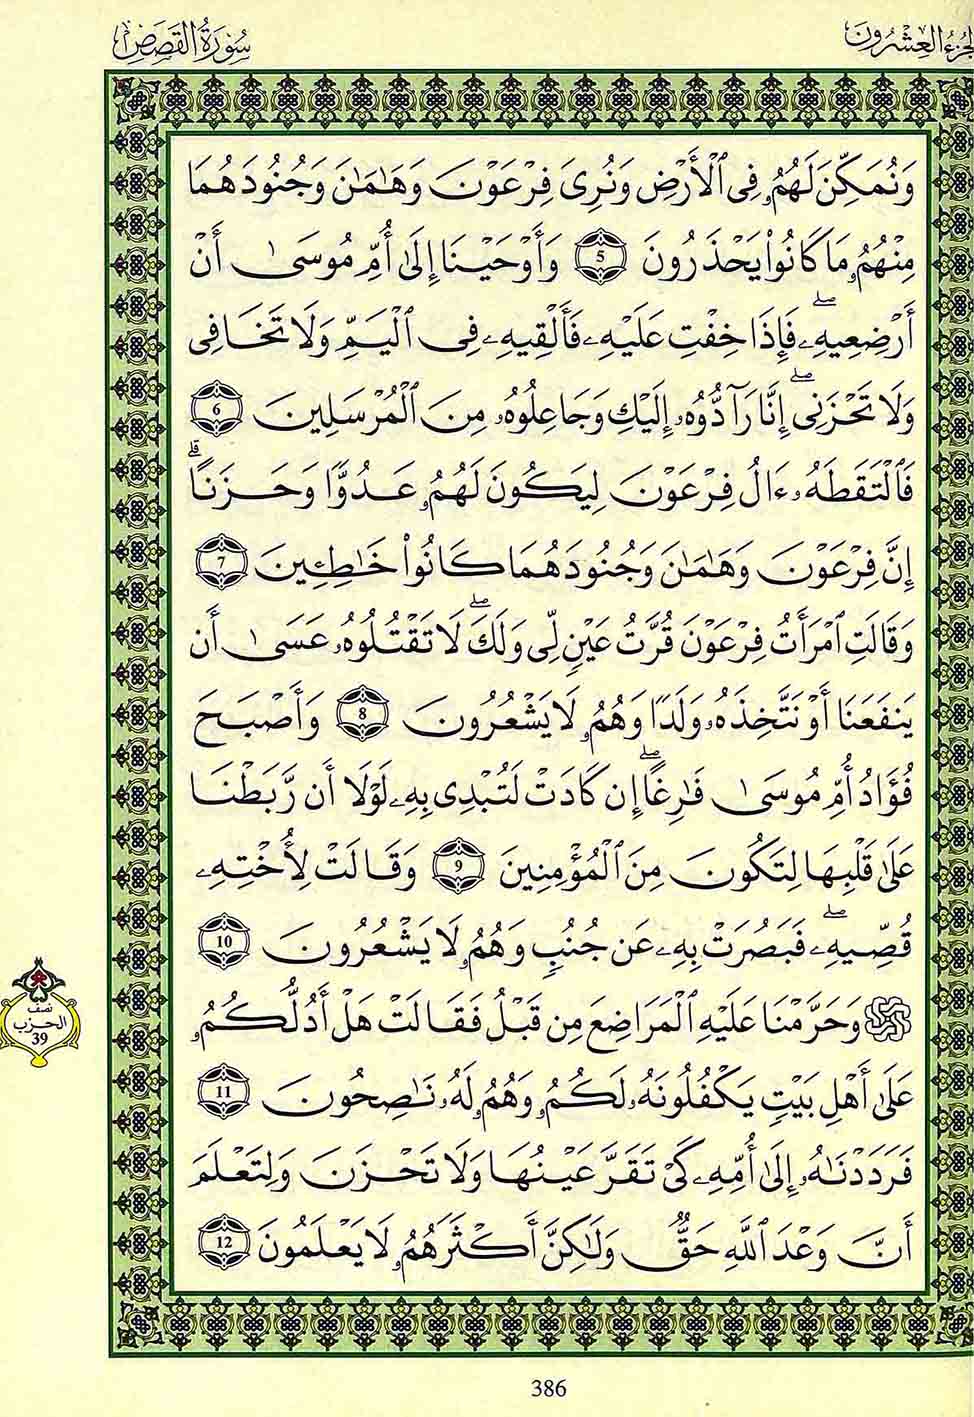 الجزء العشرون
سورة القصص
وَنُمَكِّنَ لَهُمُۥ فِي ٱلْأَرْضِ وَنُرِيَ فِرْعَوْنَ وَهَٰمَٰنَ وَجُنُودَهُمَا
مِنْهُمُۥ مَا كَانُواْ يَحْذَرُونَ 5 وَأَوْحَيْنَا إِلَىٰ أُمِّ مُوسَىٰ أَنْ
أَرْضِعِيهِۖۦ فَإِذَا خِفْتِ عَلَيْهِۦ فَأَلْقِيهِۦ فِي ٱلْيَمِّ وَلَا تَخَافِي
وَلَا تَحْزَنِيۖ إِنَّا رَآدُّوهُۥ إِلَيْكِ وَجَاعِلُوهُۥ مِنَ ٱلْمُرْسَلِينَ 6
فَٱلْتَقَطَهُۥ ءَالُ فِرْعَوْنَ لِيَكُونَ لَهُمُۥ عَدُوًّا وَحَزَنًاۗ
إِنَّ فِرْعَوْنَ وَهَٰمَٰنَ وَجُنُودَهُمَا كَانُواْ خَٰطِـِٔينَ 7
وَقَالَتِ ٱمْرَأَتُ فِرْعَوْنَ قُرَّتُ عَيْنٍ لِّي وَلَكَۖ لَا تَقْتُلُوهُۥ عَسَىٰ أَن
يَنفَعَنَا أَوْ نَتَّخِذَهُۥ وَلَدًا وَهُمُۥ لَا يَشْعُرُونَ 8 وَأَصْبَحَ
فُؤَادُ أُمِّ مُوسَىٰ فَٰرِغًاۖ إِن كَادَتْ لَتُبْدِي بِهِۦ لَوْلَا أَن رَّبَطْنَا
عَلَىٰ قَلْبِهَا لِتَكُونَ مِنَ ٱلْمُؤْمِنِينَ 9 وَقَالَتْ لِأُخْتِهِۦ
قُصِّيهِۖۦ فَبَصُرَتْ بِهِۦ عَن جُنُبٍ وَهُمُۥ لَا يَشْعُرُونَ 10
وَحَرَّمْنَا عَلَيْهِ ٱلْمَرَاضِعَ مِن قَبْلُ فَقَالَتْ هَلْ أَدُلُّكُمُۥ
عَلَىٰ أَهْلِ بَيْتٍ يَكْفُلُونَهُۥ لَكُمُۥ وَهُمُۥ لَهُۥ نَٰصِحُونَ 11
فَرَدَدْنَٰهُۥ إِلَىٰ أُمِّهِۦ كَيْ تَقَرَّ عَيْنُهَا وَلَا تَحْزَنَ وَلِتَعْلَمَ
أَنَّ وَعْدَ ٱللَّهِ حَقٌّ وَلَٰكِنَّ أَكْثَرَهُمُۥ لَا يَعْلَمُونَ 12
نصف
الحزب
39
386